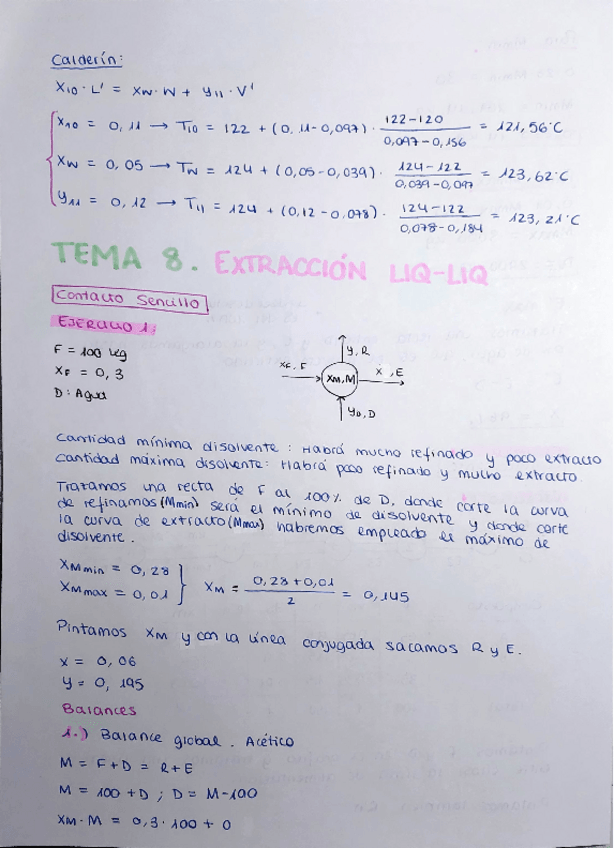 Calderín:
X10 · L' = XW · W + Y11 · V'
X10 = 0,11 → T10 = 122 + (0,11-0,097) · 122-120 / 0,097-0,156 = 121,56°C
XW = 0,05 → TW = 124 + (0,05-0,039) · 124-122 / 0,039-0,097 = 123,62°C
Y11 = 0,12 → T11 = 124 + (0,12-0,078) · 124-122 / 0,078-0,184 = 123,21°C
TEMA 8. EXTRACCIÓN LIQ-LIQ
Contacto Sencillo
EJERCICIO 1:
F = 100 kg
XF = 0,3
D: Agua
Y, R
XF, F
XM, M
X, E
YD, D
Cantidad mínima disolvente: Habrá mucho refinado y poco extracto
Cantidad máxima disolvente: Habrá poco refinado y mucho extracto.
Tratamos una recta de F al 100% de D, donde corte la curva
de refinamos (Mmin) será el mínimo de disolvente y donde corte
la curva de extracto (Mmax) habremos empleado el máximo de
disolvente.
XMmin = 0,28
XMmax = 0,01
XM = 0,28+0,01 / 2 = 0,145
Pintamos XM y con la línea conjugada sacamos R y E.
X = 0,06
Y = 0,195
Balances
1.) Balance global. Acético
M = F+D = R+E
M = 100+D ; D = M-100
XM · M = 0,3 · 100 + 0